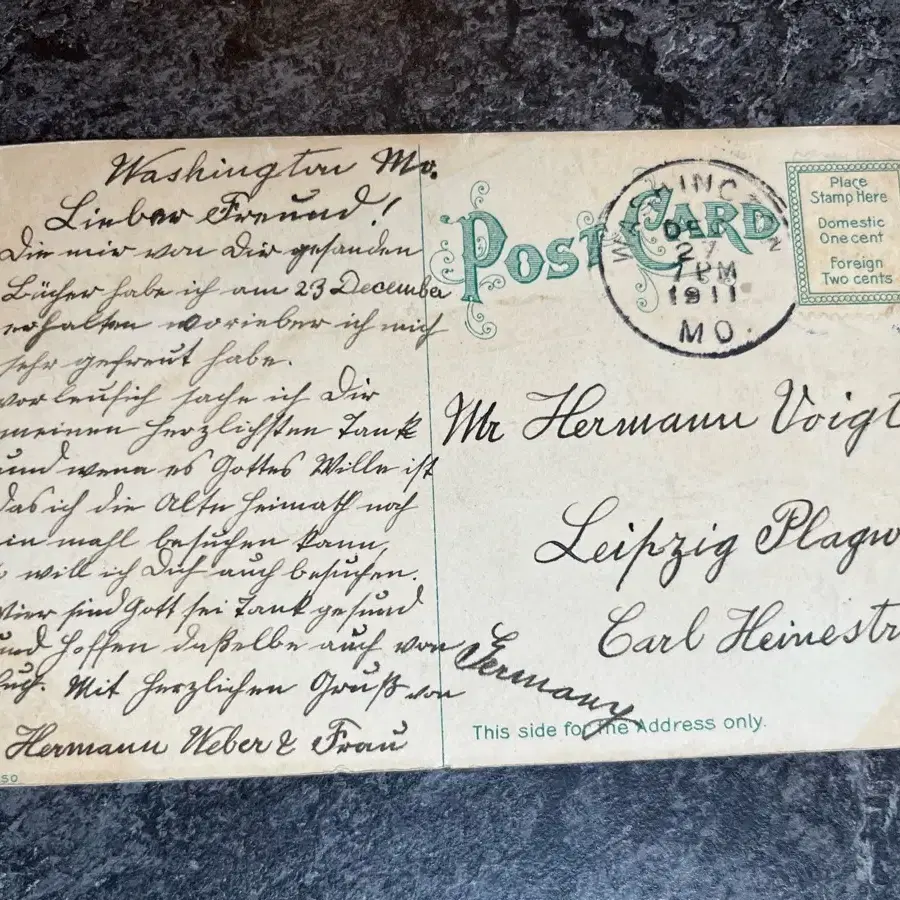 Washington Mo.
Lieber Freund!
Die mir von Dir gesanden
Bücher habe ich am 23 December
erhalten worieber ich mich
sehr gefreut habe.
vorleufich sache ich Dir
meinen herzlichsten Tank
und wenn es Gottes Wille ist
das ich die Alte Heimath noch
ein mahl besuchen kann,
will ich Dich auch besuchen.
Wier sind Gott sei Tank gesund
und hoffen daßelbe auch von
Euch. Mit herzlichen Gruß von
Hermann Weber & Frau
50
POST CARD
WASHINGTON
DEC
27
7 PM
1911
MO.
Place
Stamp Here
Domestic
One cent
Foreign
Two cents
Mr Hermann Voigt
Leipzig Plagw
Carl Heinestr
Germany
This side for the Address only.